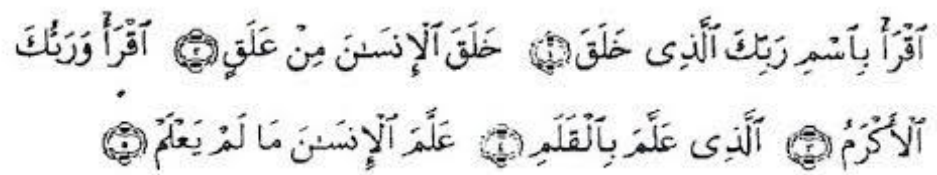 ٱقْرَأْ بِٱسْمِ رَبِّكَ ٱلَّذِى خَلَقَ ﴿١﴾ خَلَقَ ٱلْإِنسَـٰنَ مِنْ عَلَقٍ ﴿٢﴾ ٱقْرَأْ وَرَبُّكَ
ٱلْأَكْرَمُ ﴿٣﴾ ٱلَّذِى عَلَّمَ بِٱلْقَلَمِ ﴿٤﴾ عَلَّمَ ٱلْإِنسَـٰنَ مَا لَمْ يَعْلَمْ ﴿٥﴾